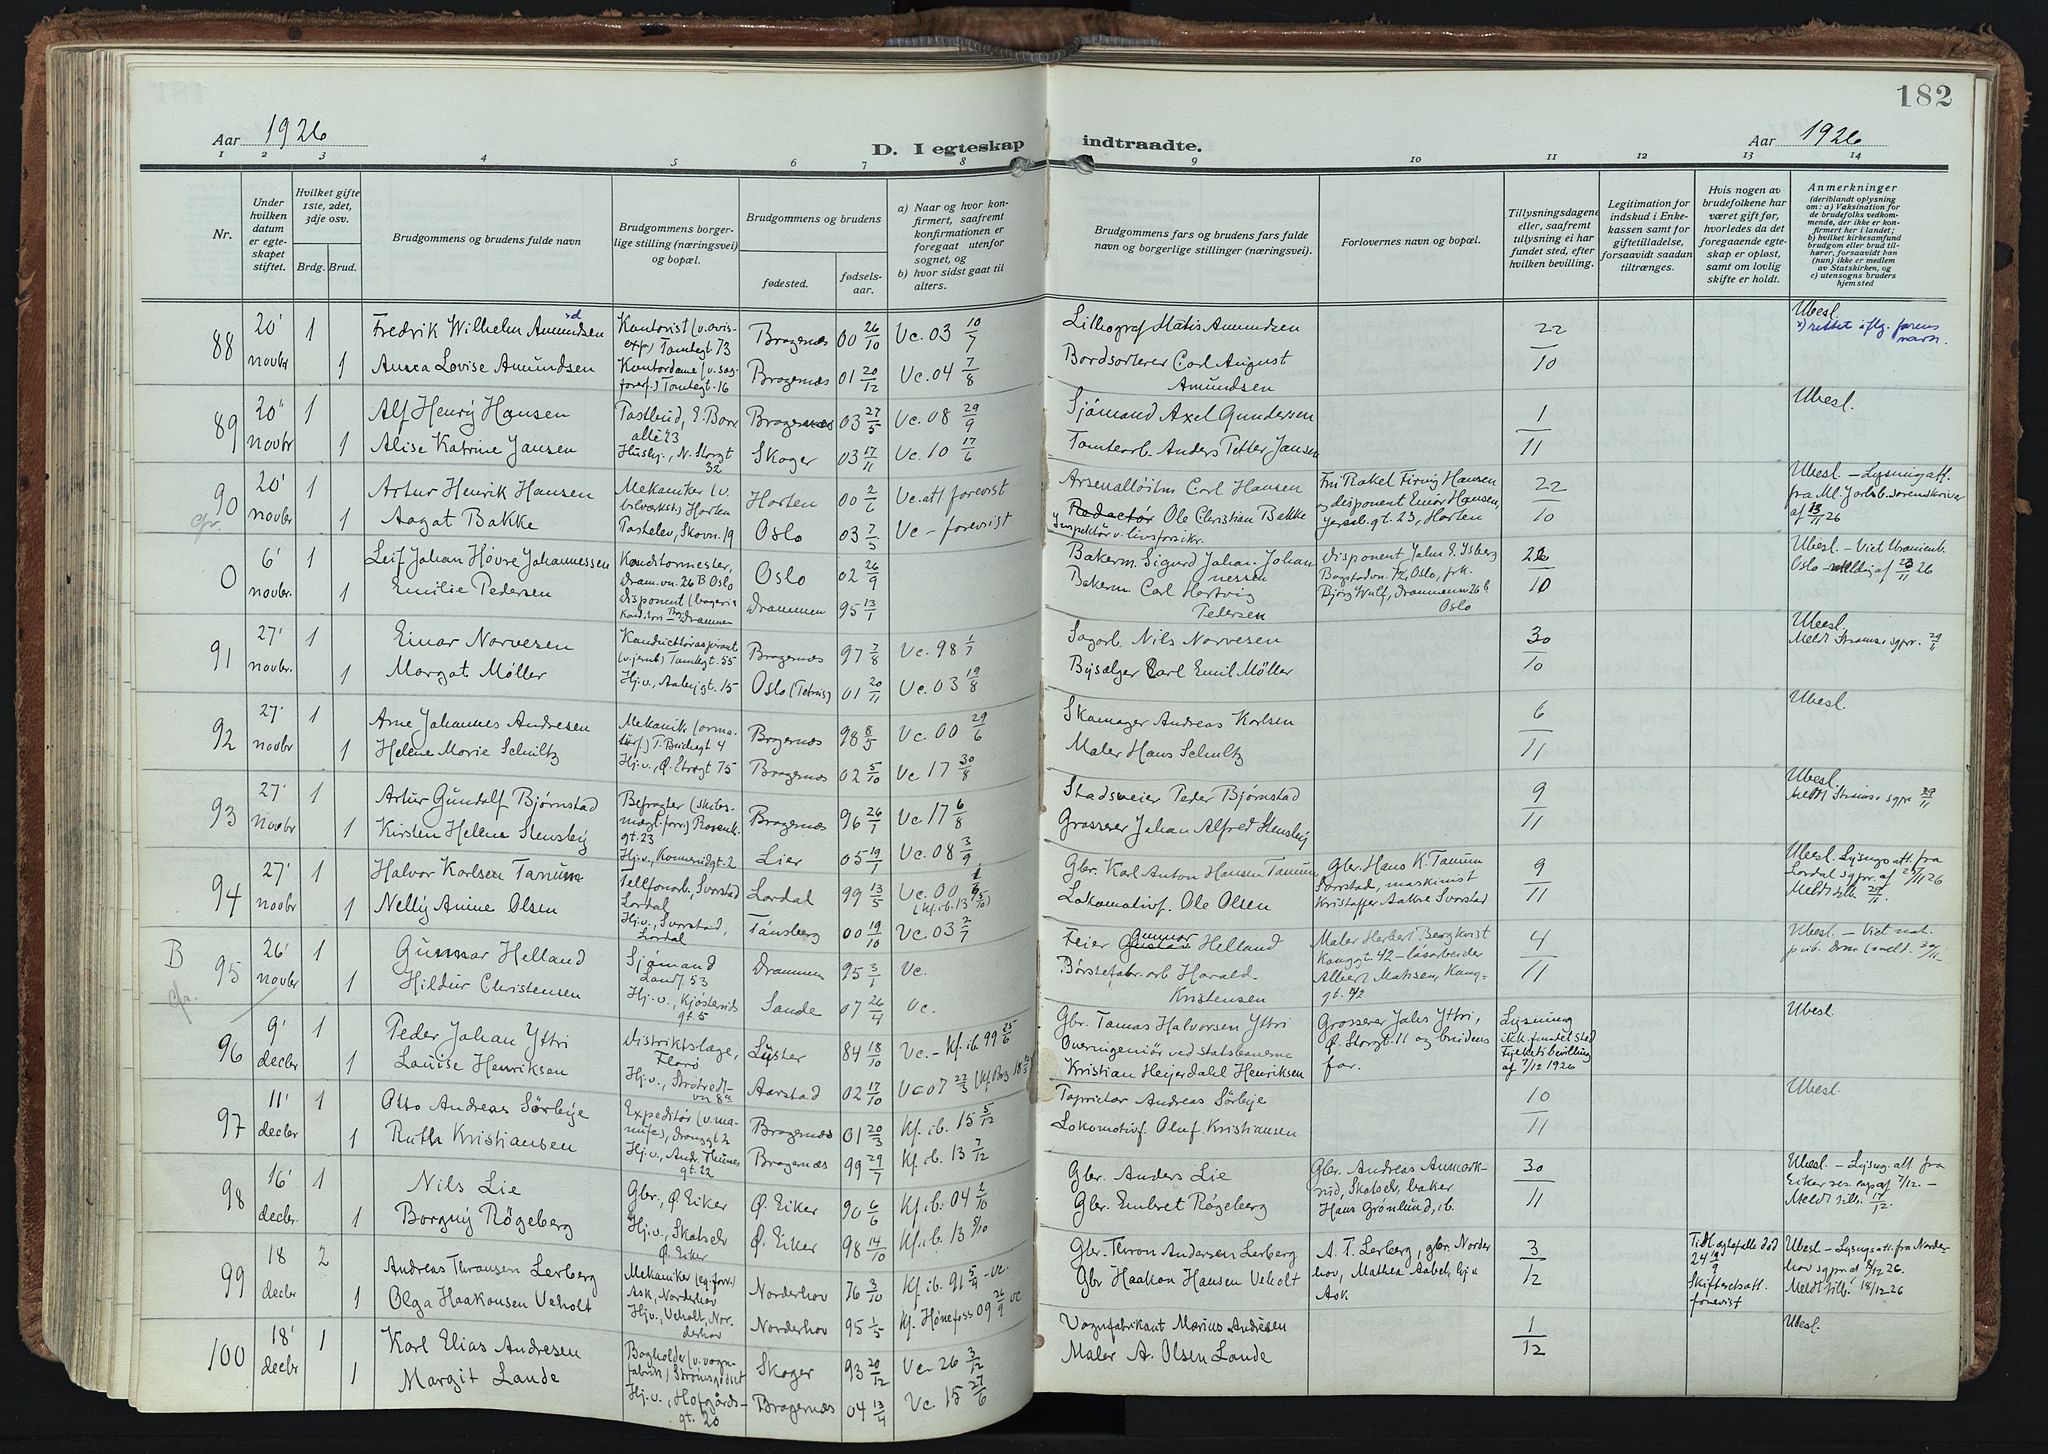 182
Aar 1926
D. I egteskap indtraadte.
Aar 1926
1 2 3 4 5 6 7 8 9 10 11 12 13 14
Nr.
Under hvilken datum er egteskapet stiftet.
Hvilket gifte 1ste, 2det, 3dje osv.
Brdg. Brud.
Brudgommens og brudens fulde navn
Brudgommens borgerlige stilling (næringsvei) og bopæl.
Brudgommens og brudens
fødested.
fødselsaar.
a) Naar og hvor konfirmert, saafremt konfirmationen er foregaat utenfor sognet, og
b) hvor sidst gaat til alters.
Brudgommens fars og brudens fars fulde navn og borgerlige stillinger (næringsvei).
Forlovernes navn og bopæl.
Tillysningsdagene eller, saafremt tillysning ei har fundet sted, efter hvilken bevilling.
Legitimation for indskud i Enkekassen samt for giftetilladelse, forsaavidt saadan tiltrænges.
Hvis nogen av brudefolkene har været gift før, hvorledes da det foregaaende egteskap er opløst, samt om lovlig skifte er holdt.
Anmerkninger
(deriblandt oplysning om: a) Vaksination for de brudefolks vedkommende, der ikke er konfirmert her i landet; b) hvilket kirkesamfund brudgom eller brud tilhører, forsaavidt han (hun) ikke er medlem av Statskirken, og c) utensogns bruders hjemsted
88 20' novbr 1 Fredrik Wilhelm Amundsen Kontorist (v. avisexp.) Tomtegt. 73 Bragernes 00 26/10 Vc. 03 10/7 Lithograf Matis Amundsen 22/10 Ubesl.
rettet iflg. farens navn.
1 Anna Lovise Amundsen Kontordame (v. sagførerf.) Tomtegt. 16 Bragernæs 01 20/12 Vc. 04 7/8 Bordsorterer Carl August Amundsen
89 20' novbr 1 Alf Henry Hansen Bragernæs 03 27/5 Vc. 08 29/9 Sjømand Axel Gundersen 1/11 Ubesl.
1 Alise Katrine Jansen Hushj., N. Storgt 32 Skoger 03 17/11 Vc. 10 17/6 Tomtearb. Anders Petter Jansen
90 20' novbr. 1 Artur Henrik Hansen Mekaniker (v. bilverkst.) Horten Horten 00 2/6 Vc. att forevist Carl Hansen Frk Rakel Firing Hansen og disponent Einar Hansen, gt. 23, Horten 22/10 Ubesl. – Lysningsatt. fra Ml. Jarlsb. sorenskriver af 13/11 26
cfr. 1 Aagot Bakke Skovv. 19 Oslo 03 7/3 Vc – forevist Redaktør Ole Christian Bakke
Inspektør v. livsforsikr.
0 6' novbr. 1 Leif Johan Høvre Johannessen Konditormester, Dram.vn. 26 B Oslo Oslo 02 26/9 Bakerm. Sigurd Johan Johannessen disponent Oslo, frk. Drammensvn 26 b Oslo 22/10 Ubesl. – Viet Uranienb. Oslo – melding af 23/11 26
1 Emilie Pedersen Disponent (bageri & Drammen Drammen 95 13/1 Bakerm Carl Hartvig Pedersen
91 27' novbr. 1 Einar Norvesen Konduktøraspirant (v. jernb) Tomtegt. 55 Bragernæs 97 7/8 Vc. 98 1/7 Sagarb. Nils Norvesen 30/10 Ubesl.
1 Margot Møller Hj.v., 15 Oslo 01 20/11 Vc. 03 19/8 Bysælger Carl Emil Møller
92 27' novbr 1 Arne Johannes Andresen Mekanik 4 Bragernæs 98 8/5 Vc. 00 29/6 Skomager Andreas Karlsen 6/11 Ubesl.
1 Helene Marie Schultz Hj.v., Ø. Storgt 75 Bragernæs 02 5/10 Vc 17 30/8 Maler Hans Schultz
93 27' novbr 1 Artur Gundolf Bjørnstad Befragter gt. 23 Bragernæs 96 26/1 Vc 17 6/8 Stadsveier Peder Bjørnstad 9/11 Ubesl.
1 Kirsten Helene Stensby Hj.v., Konnerudgt. 2 Lier 05 19/7 Vc. 08 3/9 Grosserer Johan Alfred Stensby
94 27' novbr 1 Halvor Karlsen Tanum Telefonarb., Svarstad Lardal Lardal 99 13/5 Vc. 00 Gbr. Karl Anton Hansen Tanum Gbr. Hans K. Tanum Svarstad, maskinist Kristoffer Aakre Svarstad 9/11 Ubesl. Lysngs att. fra Lardal sgpr. af 26
1 Nelly Anine Olsen Hj.v., Svarstad, Lardal Tønsberg 00 19/10 Vc. 03 2/7 Lokomotivf. Ole Olsen
B 95 26' novbr 1 Gunnar Helland Sjømand 53 Drammen 95 3/1 Vc. Feier Gustav Gunnar Helland Maler Herbert Bergkvist Konggt. 42 – løsarbeider Albert Matisen, Konggt. 42 4/11 Ubesl. – Viet
cfr. 1 Hildur Christensen Hj.v., Kjøsterudsgt. 5 Sande 07 26/4 Vc. Børstefabr.arb Harald Kristensen
96 9' decbr 1 Peder Johan Yttri distriktslæge, Florø Lyster 84 18/10 Vc. – Kf. ib. 99 25/6 Gbr. Tomas Halvorsen Yttri Grosserer Johs Yttri, Ø. Storgt. 11 og brudens far. Lysning ikke fundet sted af 7/12 1926 Ubesl.
1 Louise Henriksen Hj.v., Aarstad 02 17/10 Vc 07 22/3 Overingeniør ved statsbanerne Kristian Heyerdahl Henriksen
97 11' decbr 1 Otto Andreas Sørbye Expeditør Bragernæs 01 20/3 Kf. ib. 15 5/12 Andreas Sørbye 10/11 Ubesl.
1 Ruth Kristiansen Hj.v., And. Thunes gt. 22 Bragernæs 99 29/7 Kf. ib. 13 7/12 Lokomotivf. Oluf Kristiansen
98 16' decbr. 1 Nils Lie Gbr., Ø. Eiker Ø. Eiker 90 6/6 Kf. ib. 04 2/10 Gbr. Anders Lie Gbr. Andreas Anmarkrud, Skotselv, baker Hans Grønlund, ib. 30/11 Ubesl. – Lysng. att. fra Eiker 7/12. – Meldt till. 17/12.
1 Borgny Røgeberg Hj.v., Skotselv Ø. Eiker Ø. Eiker 98 14/10 Kf. ib. 13 5/10 Gbr. Embret Røgeberg
99 18 decbr 2 Andreas Thronsen Lerberg Mekaniker Ask, Norderhov Norderhov 76 3/10 Kf ib. 91 5/9 – Vc. Gbr. Thron Andersen Lerberg A. T. Lerberg, gbr. Norderhov, Mathea Aabel, hj.v Ask 3/12 Tidl. egtefelle død 24 19/9 Skifteretsatt. forevist Ubesl – Lysngs att. fra Norderhov sgpr. af 8/12 26. Meldt tilb. 18/12 26
1 Olga Haakonsen Veholt Hj.v., Veholt, Norderhov Norderhov 95 1/5 Kf. Hønefoss 09 26/9 vc Gbr Haakon Hansen Veholt
100 18' decbr 1 Karl Elias Andresen Bogholder (v. vognfabrik) Strømsgodset Skoger 93 20/12 Vc – 26 3/12 Vognfabrikant Marius Andresen 1/12 Ubesl.
1 Margit Lande Hj.v., Hofgårdsgt. 20 Bragernæs 04 13/4 Vc. 15 27/6 Maler A. Olsen Lande